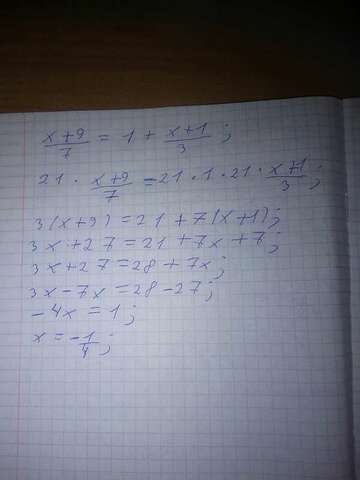 x+9/7 = 1 + x+1/3 ;
21 · x+9/7 = 21 · 1 · 21 · x+1/3 ;
3(x+9) = 21 + 7(x+1);
3x + 27 = 21 + 7x + 7;
3x + 27 = 28 + 7x;
3x - 7x = 28 - 27;
- 4x = 1;
x = - 1/4 ;